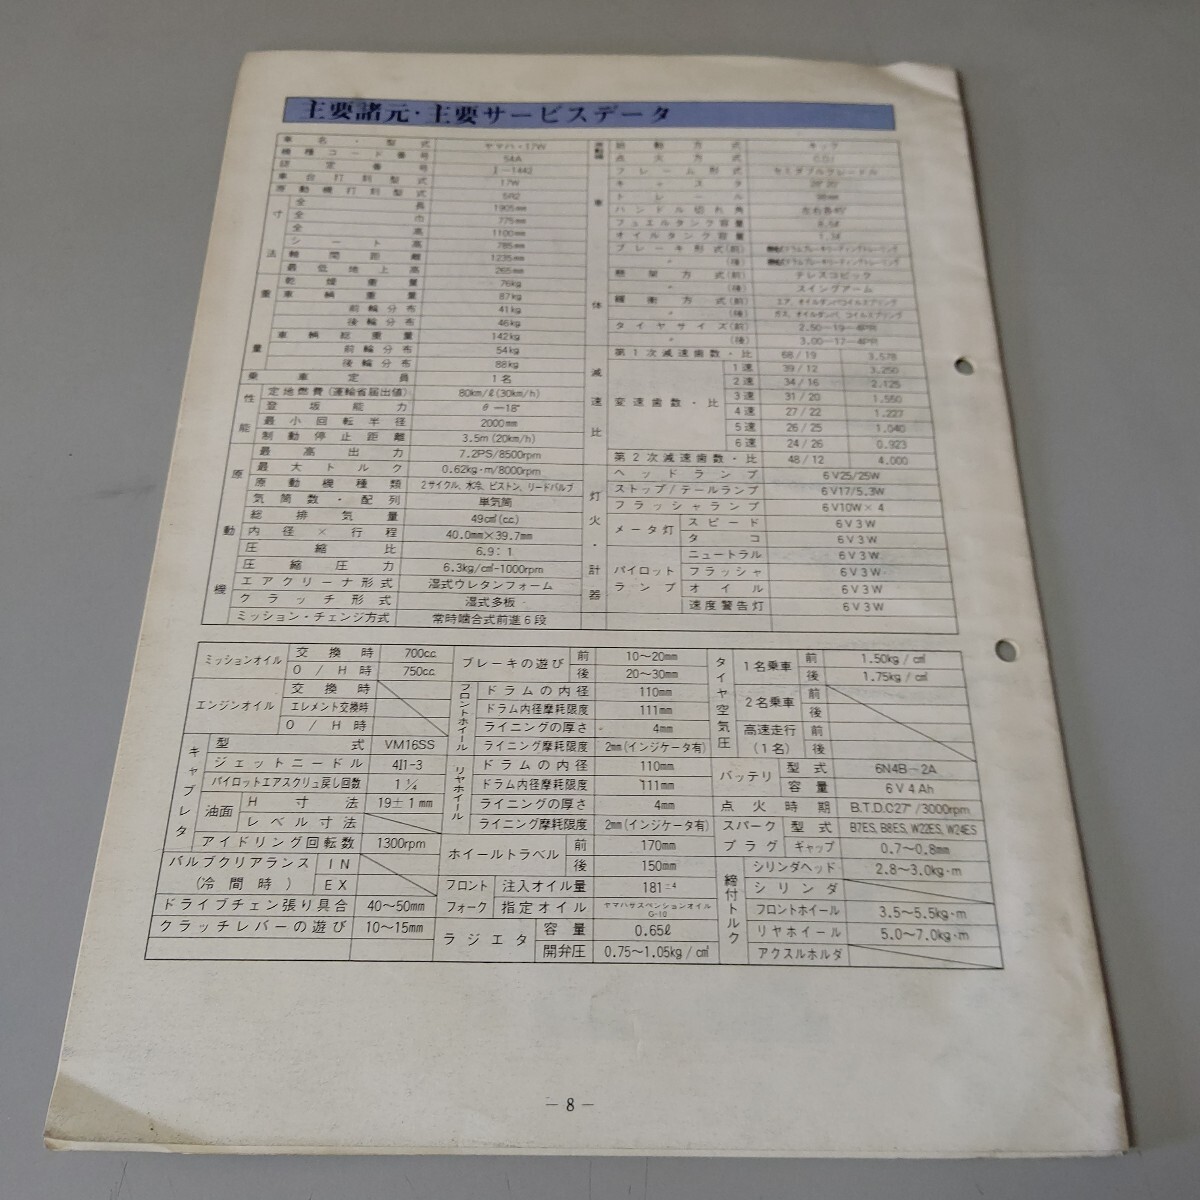 主要諸元・主要サービスデータ
車名・型式 ヤマハ・17W
機種コード番号 54A
認定番号 I-1442
車台打刻型式 17W
原動機打刻型式 5R2
寸法
全長 1905mm
全巾 775mm
全高 1100mm
シート高 785mm
軸間距離 1235mm
最低地上高 265mm
重量
乾燥重量 76kg
車輌重量 87kg
前輪分布 41kg
後輪分布 46kg
車輌総重量 142kg
前輪分布 54kg
後輪分布 88kg
乗車定員 1名
性能
定地燃費(運輸省届出値) 80km/ℓ(30km/h)
登坂能力 θ—18°
最小回転半径 2000mm
制動停止距離 3.5m(20km/h)
原動機
最高出力 7.2PS/8500rpm
最大トルク 0.62kg・m/8000rpm
原動機種類 2サイクル、水冷、ピストン、リードバルブ
気筒数・配列 単気筒
総排気量 49cm³(cc)
内径×行程 40.0mm×39.7mm
圧縮比 6.9:1
圧縮圧力 6.3kg/cm²-1000rpm
エアクリーナ形式 湿式ウレタンフォーム
クラッチ形式 湿式多板
ミッション・チェンジ方式 常時噛合式前進6段
始動方式 キック
点火方式 C.D.I
車体
フレーム形式 セミダブルクレードル
キャスタ
トレール
ハンドル切れ角
フュエルタンク容量
オイルタンク容量
ブレーキ形式(前)
〃(後)
懸架方式(前) テレスコピック
〃(後) スイングアーム
緩衝方式(前) エア、オイルダンパコイルスプリング
〃(後) ガス、オイルダンパ、コイルスプリング
タイヤサイズ(前) 2.50-19-4PR
〃(後) 3.00-17-4PR
減速比
第1次減速歯数・比 68/19 3.578
変速歯数・比
1速 39/12 3.250
2速 34/16 2.125
3速 31/20 1.550
4速 27/22 1.227
5速 26/25 1.040
6速 24/26 0.923
第2次減速歯数・比 48/12 4.000
灯火・計器
ヘッドランプ 6V25/25W
ストップ/テールランプ 6V17/5.3W
フラッシャランプ 6V10W×4
メータ灯
スピード 6V3W
タコ 6V3W
パイロットランプ
ニュートラル 6V3W
フラッシャ 6V3W
オイル 6V3W
速度警告灯 6V3W
ミッションオイル 交換時 700cc
O/H時 750cc
エンジンオイル 交換時
エレメント交換時
O/H時
キャブレタ
型式 VM16SS
ジェットニードル 4I1-3
パイロットエアスクリュ戻し回数 1¼
油面 H寸法 19±1mm
レベル寸法
アイドリング回転数 1300rpm
バルブクリアランス(冷間時) IN
EX
ドライブチェン張り具合 40〜50mm
クラッチレバーの遊び 10〜15mm
ブレーキの遊び 前 10〜20mm
後 20〜30mm
フロントホイール
ドラムの内径 110mm
ドラム内径摩耗限度 111mm
ライニングの厚さ 4mm
ライニング摩耗限度 2mm(インジケータ有)
リヤホイール
ドラムの内径 110mm
ドラム内径摩耗限度 111mm
ライニングの厚さ 4mm
ライニング摩耗限度 2mm(インジケータ有)
ホイールトラベル 前 170mm
後 150mm
フロントフォーク
注入オイル量 181±4
指定オイル ヤマハサスペンションオイル G-10
ラジエタ 容量 0.65ℓ
開弁圧 0.75〜1.05kg/cm²
タイヤ空気圧
1名乗車 前 1.50kg/cm²
後 1.75kg/cm²
2名乗車 前
後
高速走行(1名) 前
後
バッテリ 型式 6N4B-2A
容量 6V4Ah
点火時期 B.T.D.C27°/3000rpm
スパークプラグ 型式 B7ES, B8ES, W22ES, W24ES
ギャップ 0.7〜0.8mm
締付トルク
シリンダヘッド 2.8〜3.0kg・m
シリンダ
フロントホイール 3.5〜5.5kg・m
リヤホイール 5.0〜7.0kg・m
アクスルホルダ
— 8 —